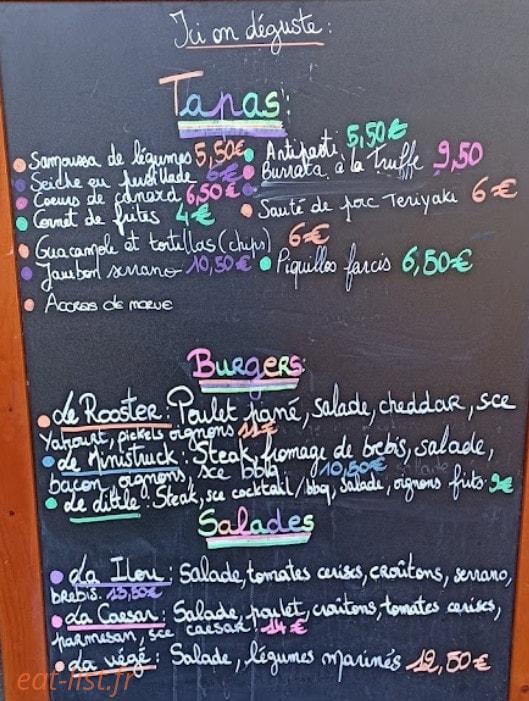 Ici on déguste :
Tapas :
Samoussa de légumes 5,50€
Antipasti 5,50€
Seiche en persillade 6€
Burrata à la truffe 9,50
Coeurs de canard 6,50€
Cornet de frites 4€
Sauté de porc Teriyaki 6€
Guacamole et tortillas (chips) 6€
Jambon serrano 10,50€
Piquillos farcis 6,50€
Accras de morue
Burgers :
Le Rooster : Poulet pané, salade, cheddar, sce
Yahourt, pickels oignons 11€
Le Ministruck : Steak, fromage de brebis, salade,
bacon, oignons, sce bbq. 10,50€
Le dittle : Steak, sce cocktail/bbq, salade, oignons frits 9€
Salades
La Ilou : Salade, tomates cerises, croûtons, serrano,
brebis. 13,50€
La Caesar : Salade, poulet, croûtons, tomates cerises,
parmesan, sce caesar. 14€
La végé : Salade, légumes marinés 12,50€
eat-list.fr